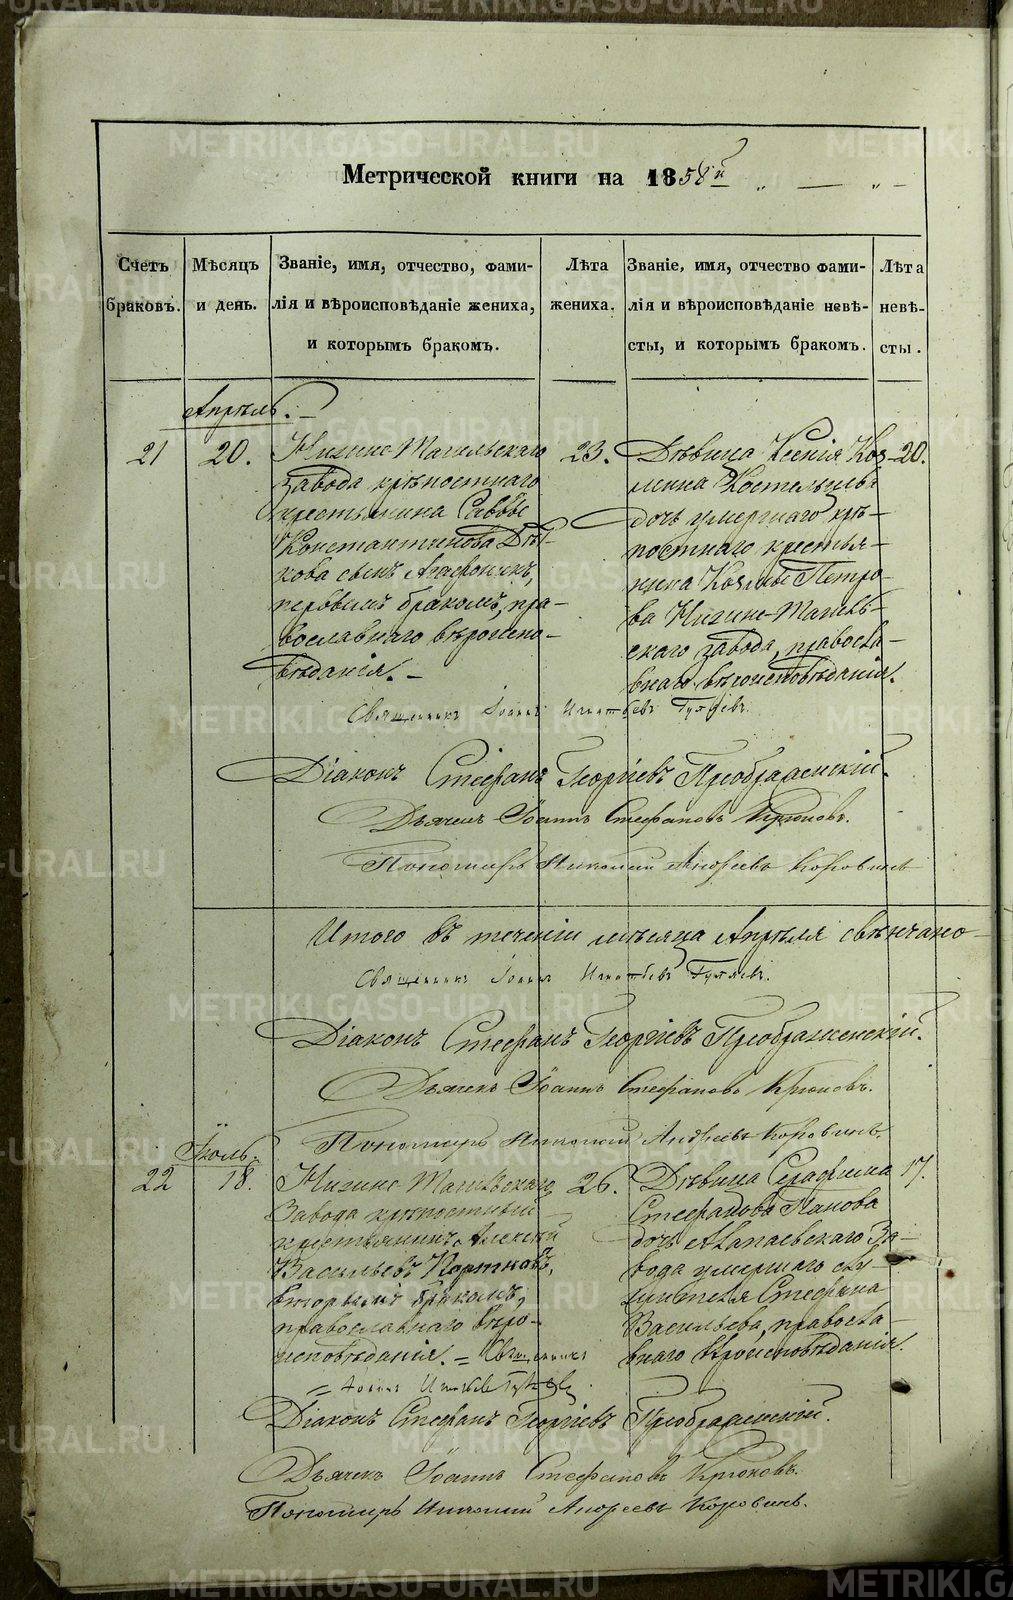 Метрической книги на 1858й
Счетъ браковъ.
Мѣсяцъ и день.
Званіе, имя, отчество, фами-
лія и вѣроисповѣданіе жениха,
и которымъ бракомъ.
Лѣта жениха.
Званіе, имя, отчество фами-
лія и вѣроисповѣданіе невѣ-
сты, и которымъ бракомъ.
Лѣта невѣ-
сты.
Апрѣль.
21
20.
Нижне-Тагильскаго
завода крѣпостнаго
крестьянина Саввы
Константинова
кова сынъ
первымъ бракомъ, пра-
вославнаго вѣроиспо-
вѣданія.
23.
Дѣвица Ксенія Коз-
мина
дочь умершаго крѣ-
постнаго крестья-
нина Козмы Петро-
ва Нижне-Тагиль-
скаго завода, правосла-
внаго вѣроисповѣданія.
20.
Священникъ Іоаннъ Игнатьевъ
Діаконъ Стефанъ Георгіевъ Преображенскій.
Дьячекъ Іоаннъ Стефановъ Крюковъ.
Пономарь Николай Андреевъ Коровинъ
Итого въ теченіи мѣсяца Апрѣля свѣнчано
Священникъ Іоаннъ Игнатьевъ
Діаконъ Стефанъ Георгіевъ Преображенскій.
Дьячекъ Іоаннъ Стефановъ Крюковъ.
Пономарь Николай Андреевъ Коровинъ.
Іюль.
22
18.
Нижне-Тагильскаго
Завода крѣпостный
крестьянинъ Алексѣй
Васильевъ Портновъ,
вторымъ бракомъ,
православнаго вѣро-
исповѣданія. = Священникъ
= Іоаннъ Игнатьевъ
26.
Дѣвица Серафима
Стефанова Панова
дочь Алапаевскаго За-
вода умершаго слу-
жителя Стефана
Васильева, правосла-
внаго вѣроисповѣданія.
17.
Діаконъ Стефанъ Георгіевъ Преображенскій.
Дьячекъ Іоаннъ Стефановъ Крюковъ.
Пономарь Николай Андреевъ Коровинъ.
METRIKI.GASO-URAL.RU